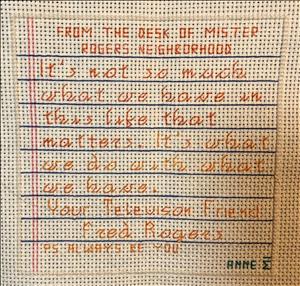 FROM THE DESK OF MISTER
ROGERS NEIGHBORHOOD
It's not so much
what we have in
this life that
matters. It's what
we do with what
we have.
Your Televison Friend
Fred Rogers
PS ALWAYS BE YOU
ANNE Σ